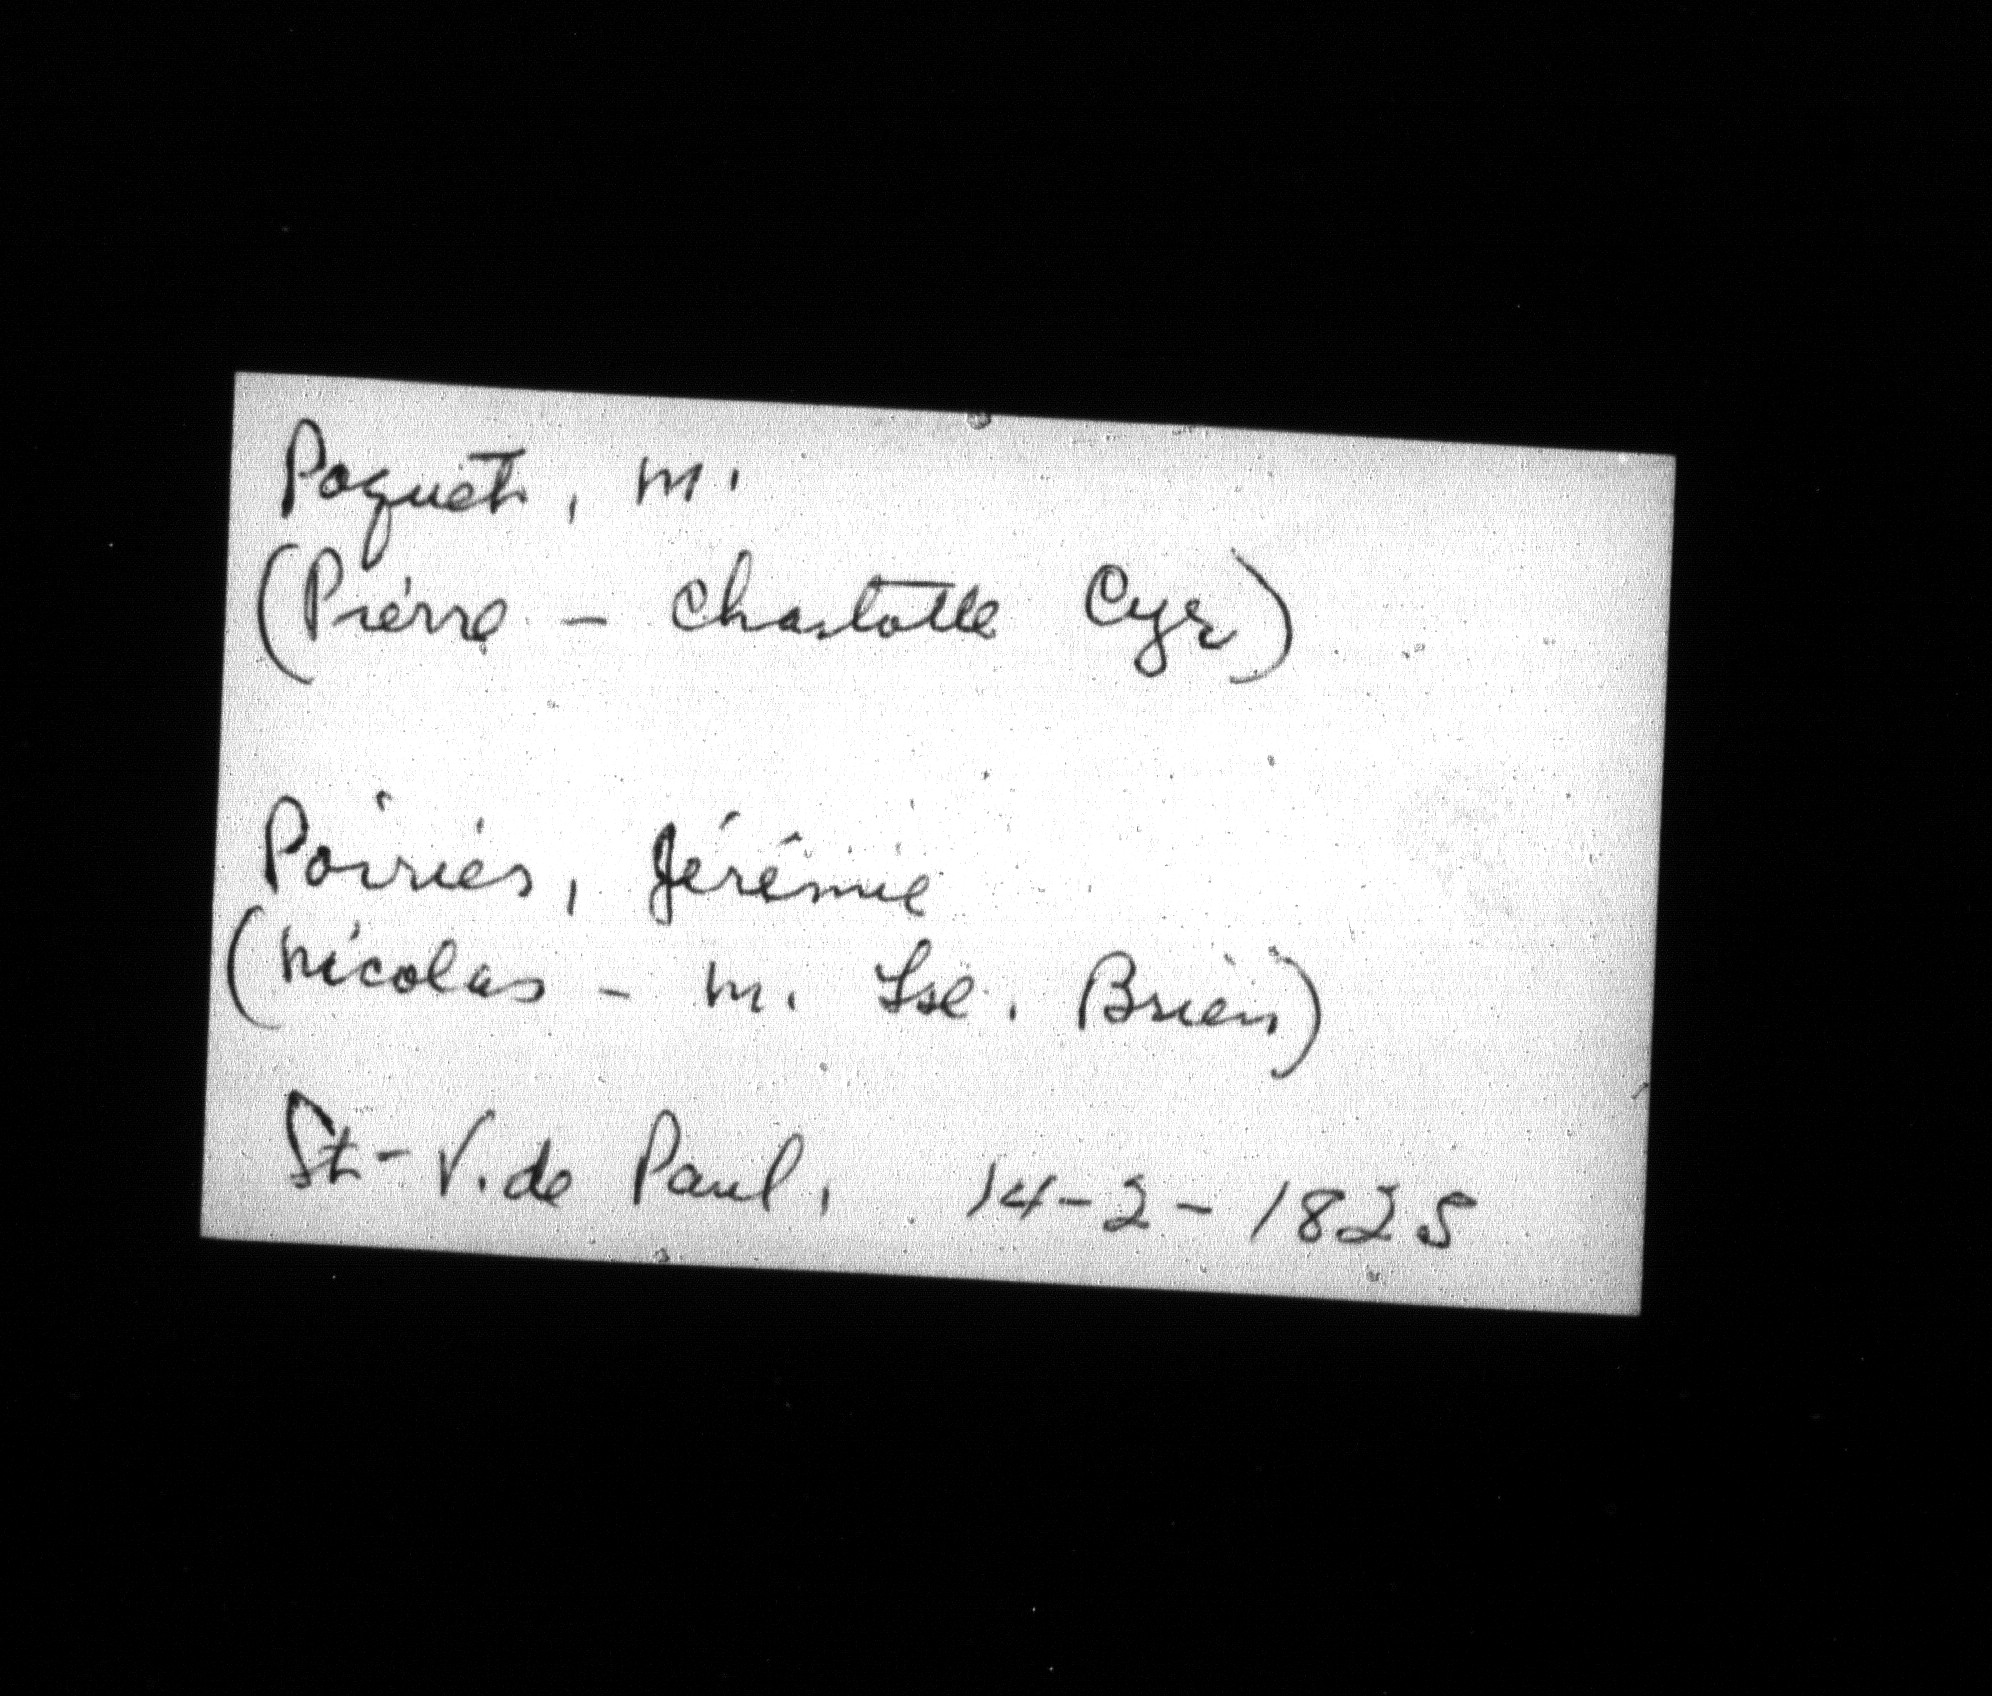 Poquet, M.
(Pierre - Charlotte Cyr)
Poirier, Jérémie
(Nicolas - M. Lse. Brien)
St-V. de Paul, 14-2-1825